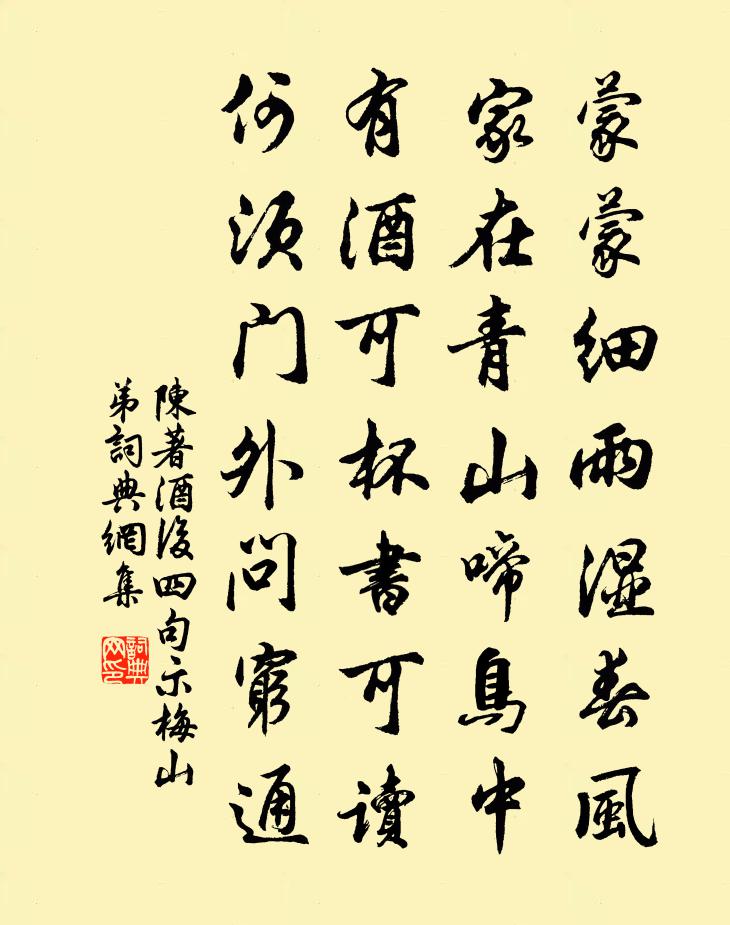 蒙蒙細雨湿春風
家在青山啼鳥中
有酒可杯書可讀
何須门外问窮通
陳著酒後四句示梅山
弟詞典網集
詞典网印